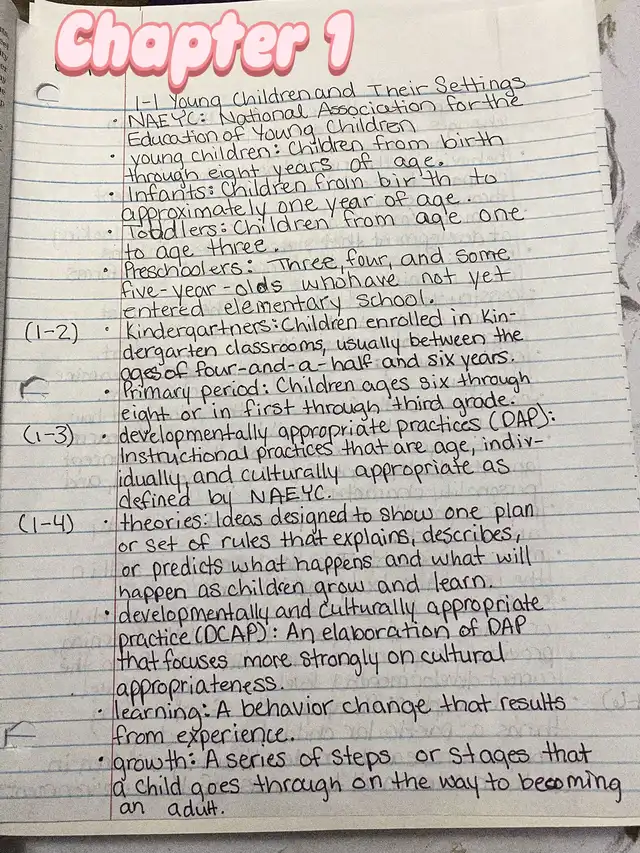 Chapter 1
1-1 Young Children and Their Settings
• NAEYC: National Association for the
Education of Young Children
• young children: Children from birth
through eight years of age.
• Infants: Children from birth to
approximately one year of age.
• Toddlers: Children from age one
to age three.
• Preschoolers: Three, four, and some
five-year-olds who have not yet
entered elementary school.
(1-2) • Kindergartners: Children enrolled in Kin-
dergarten classrooms, usually between the
ages of four-and-a-half and six years.
• Primary period: Children ages six through
eight or in first through third grade.
(1-3) • developmentally appropriate practices (DAP):
Instructional practices that are age, indiv-
idually, and culturally appropriate as
defined by NAEYC.
(1-4) • theories: Ideas designed to show one plan
or set of rules that explains, describes,
or predicts what happens and what will
happen as children grow and learn.
• developmentally and culturally appropriate
practice (DCAP): An elaboration of DAP
that focuses more strongly on cultural
appropriateness.
• learning: A behavior change that results
from experience.
• growth: A series of steps or stages that
a child goes through on the way to becoming
an adult.